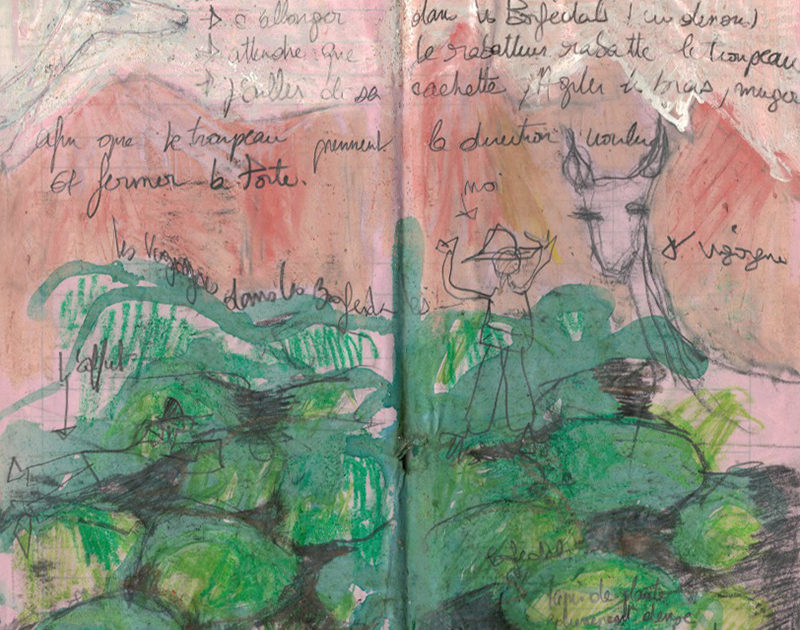 → s'allonger dans les Bofedals ! (ci dessous)
→ attendre que le rabatteur rabatte le troupeau
→ jaillir de sa cachette, Agiter les bras, mugir
afin que le troupeau prennent la direction voulue
Et fermer la Porte.
moi
vigogne
les vigognes dans les Bofedales
l'affut
Bofedal
tapis de plante
dense